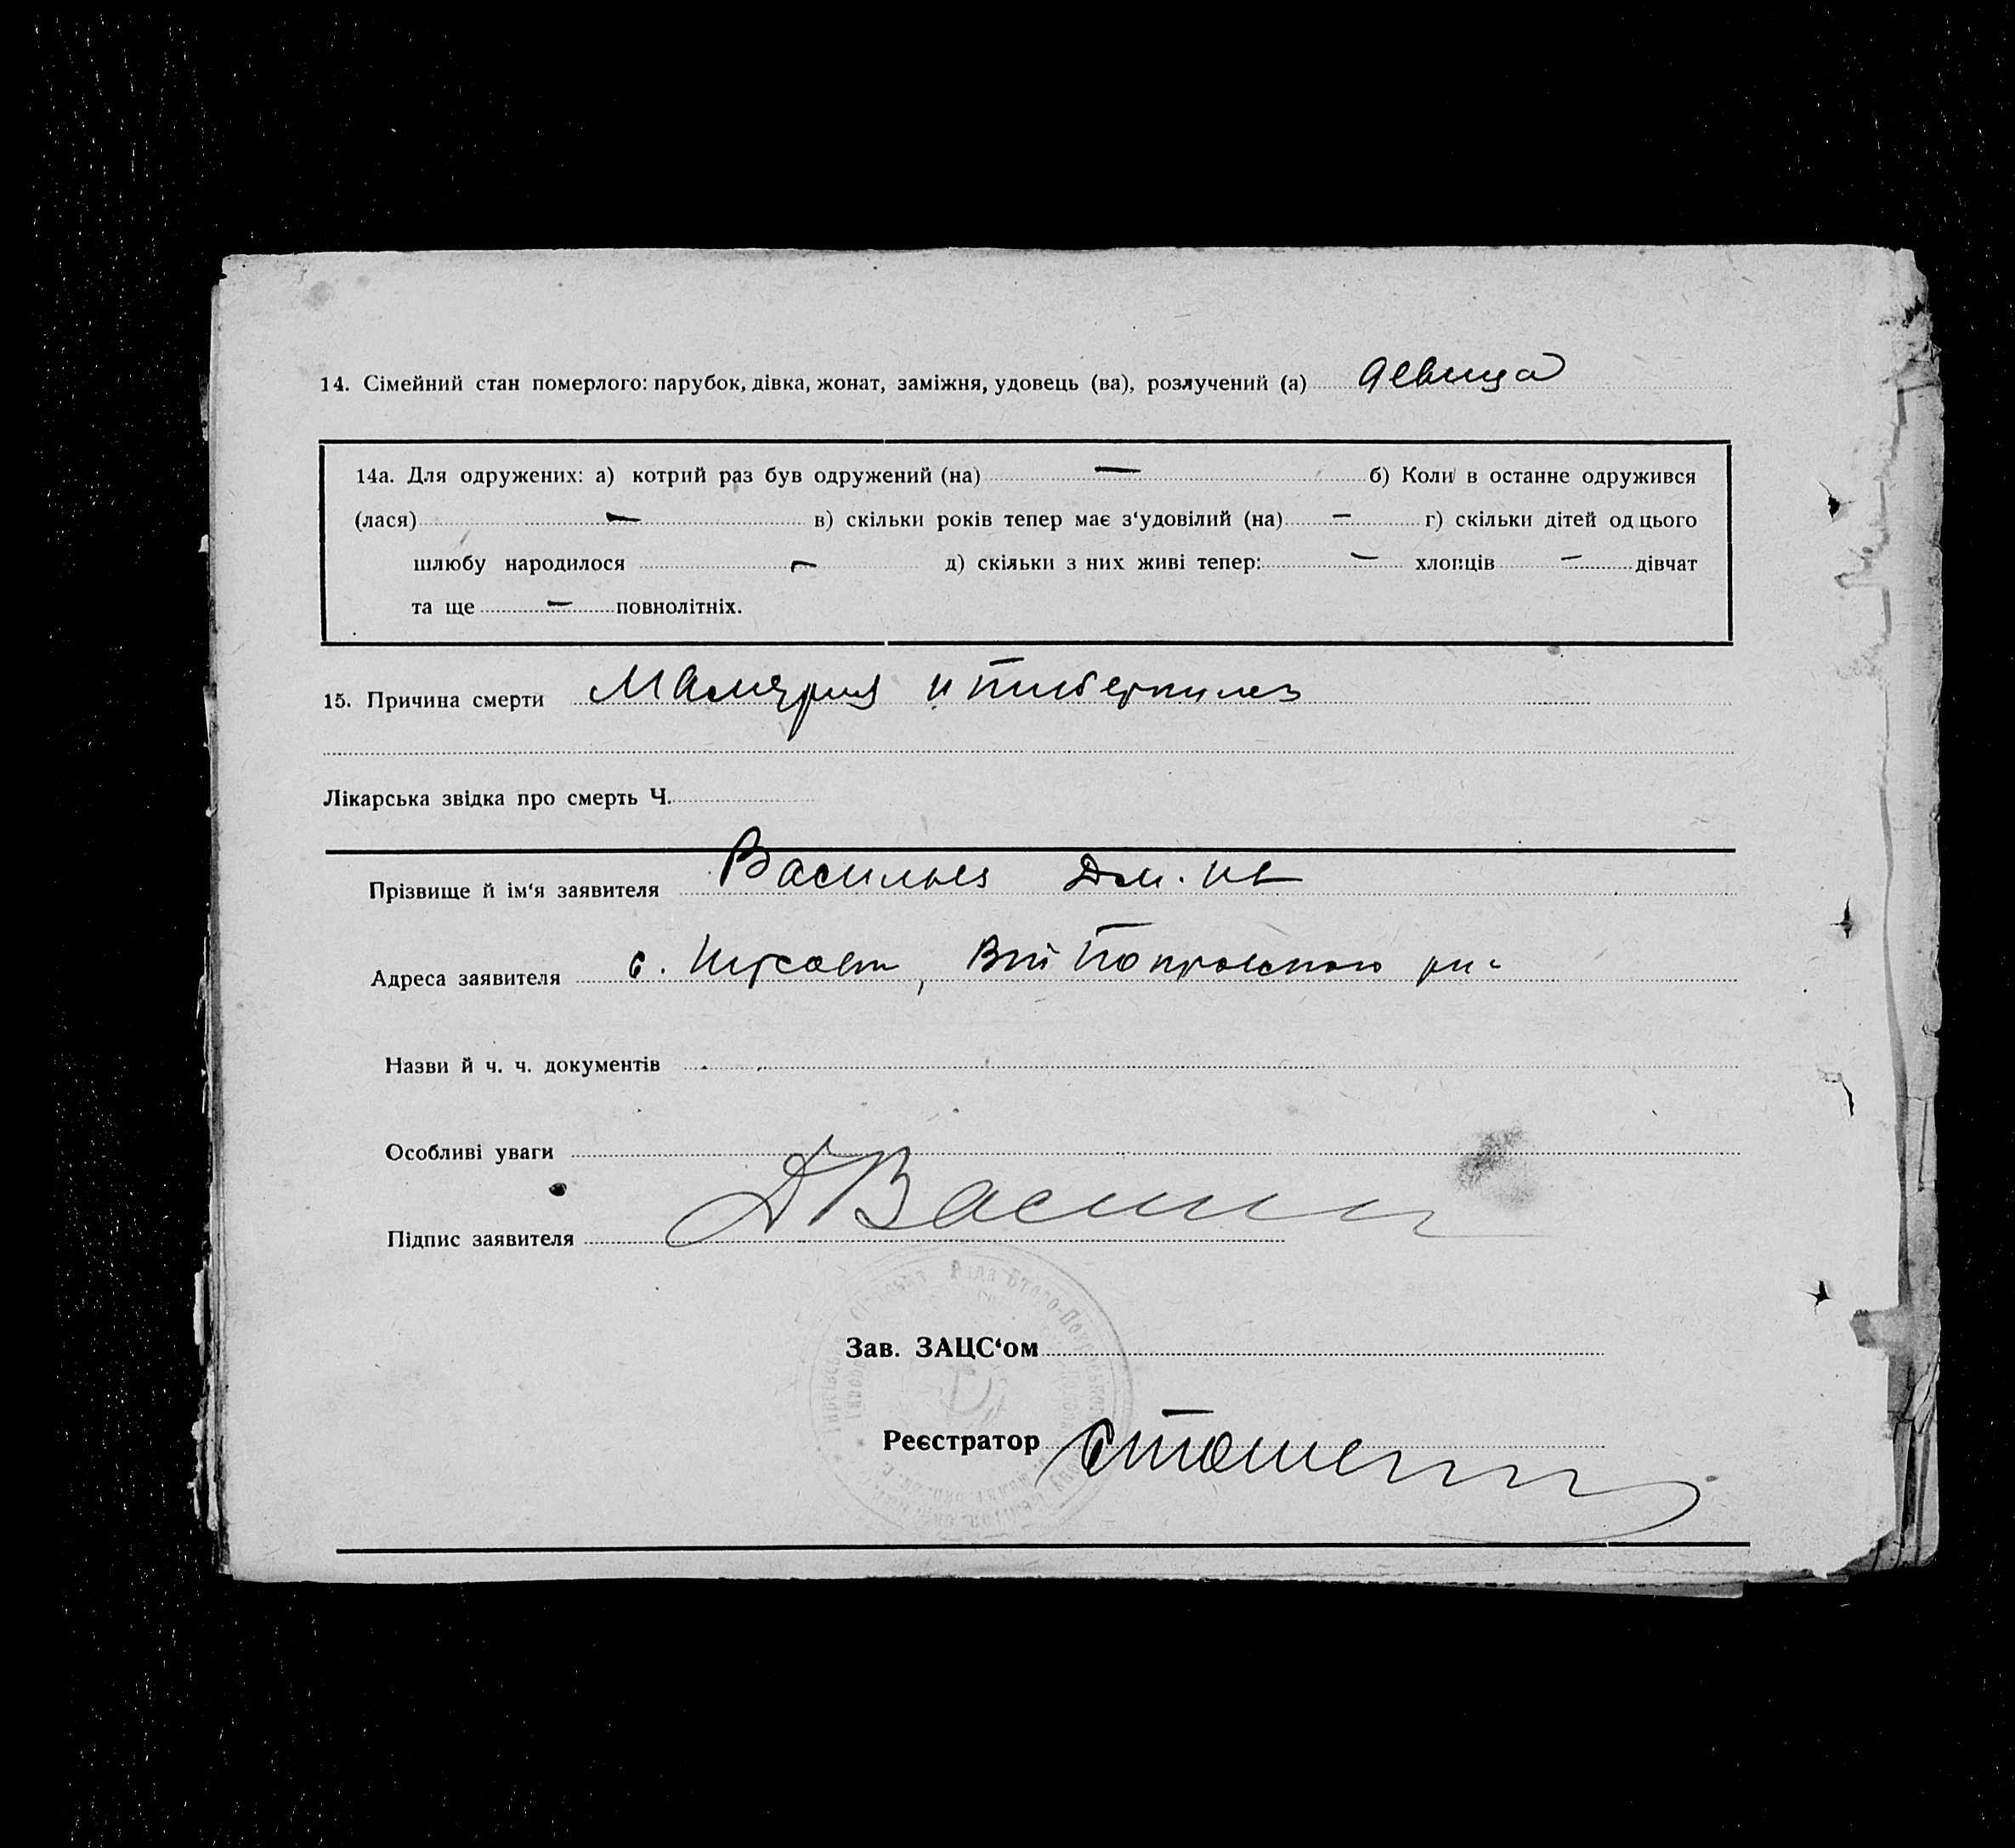 14. Сімейний стан померлого: парубок, дівка, жонат, заміжня, удовець (ва), розлучений (а) девица
14а. Для одружених: а) котрий раз був одружений (на) — б) Коли в останне одружився
(лася) — в) скільки років тепер має з‘удовілий (на) — г) скільки дітей од цього
шлюбу народилося — д) скільки з них живі тепер: — хлопців — дівчат
та ще — повнолітніх.
15. Причина смерти Малярия и туберкулез
Лікарська звідка про смерть Ч.
Прізвище й ім‘я заявителя Васильев Дм. Ив
Адреса заявителя с. , Вт Покровского
Назви й ч. ч. документів
Особливі уваги
Підпис заявителя ДВасил
Зав. ЗАЦС‘ом
Реєстратор